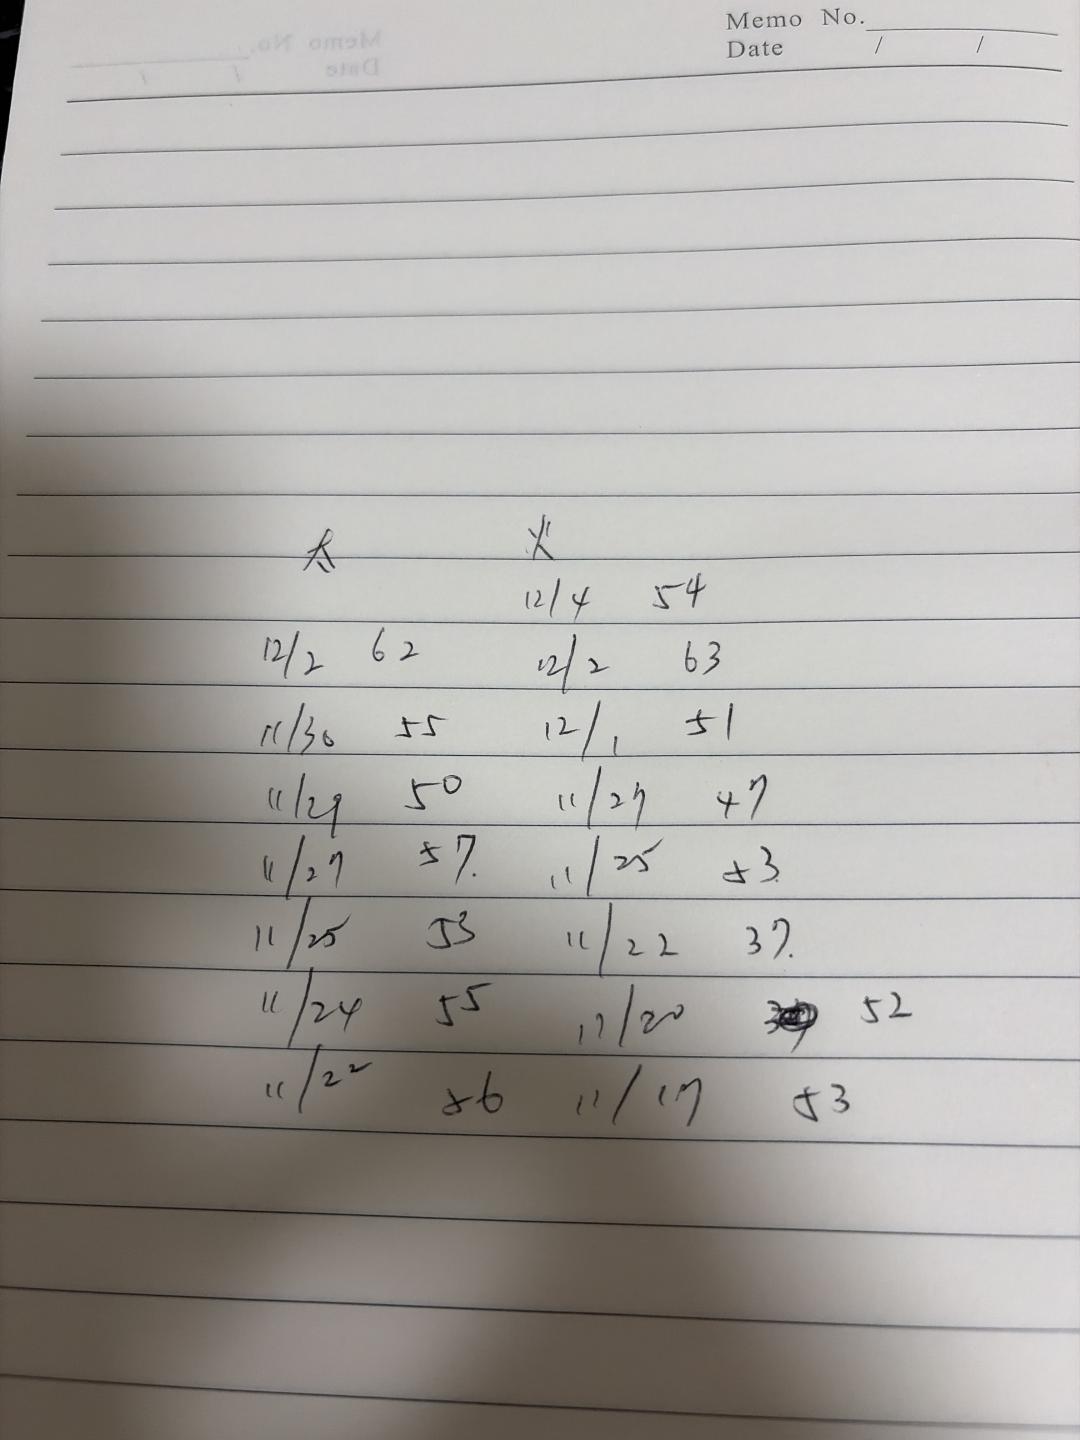 Memo No.
Date / /
太 火
12/4 54
12/2 62 12/2 63
11/30 55 12/1 51
11/29 50 11/27 47
11/27 57. 11/25 53.
11/25 53 11/22 37.
11/24 55 11/20 52
11/22 56 11/17 53